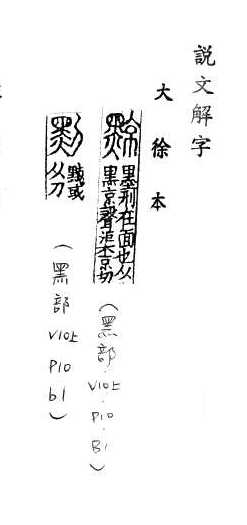 説文解字
大徐本
黥 墨刑在面也从
黑京聲渠京切
(黑部 V10上 P10 B1)
剠 黥或
从刀
(黑部 V10上 P10 b1)